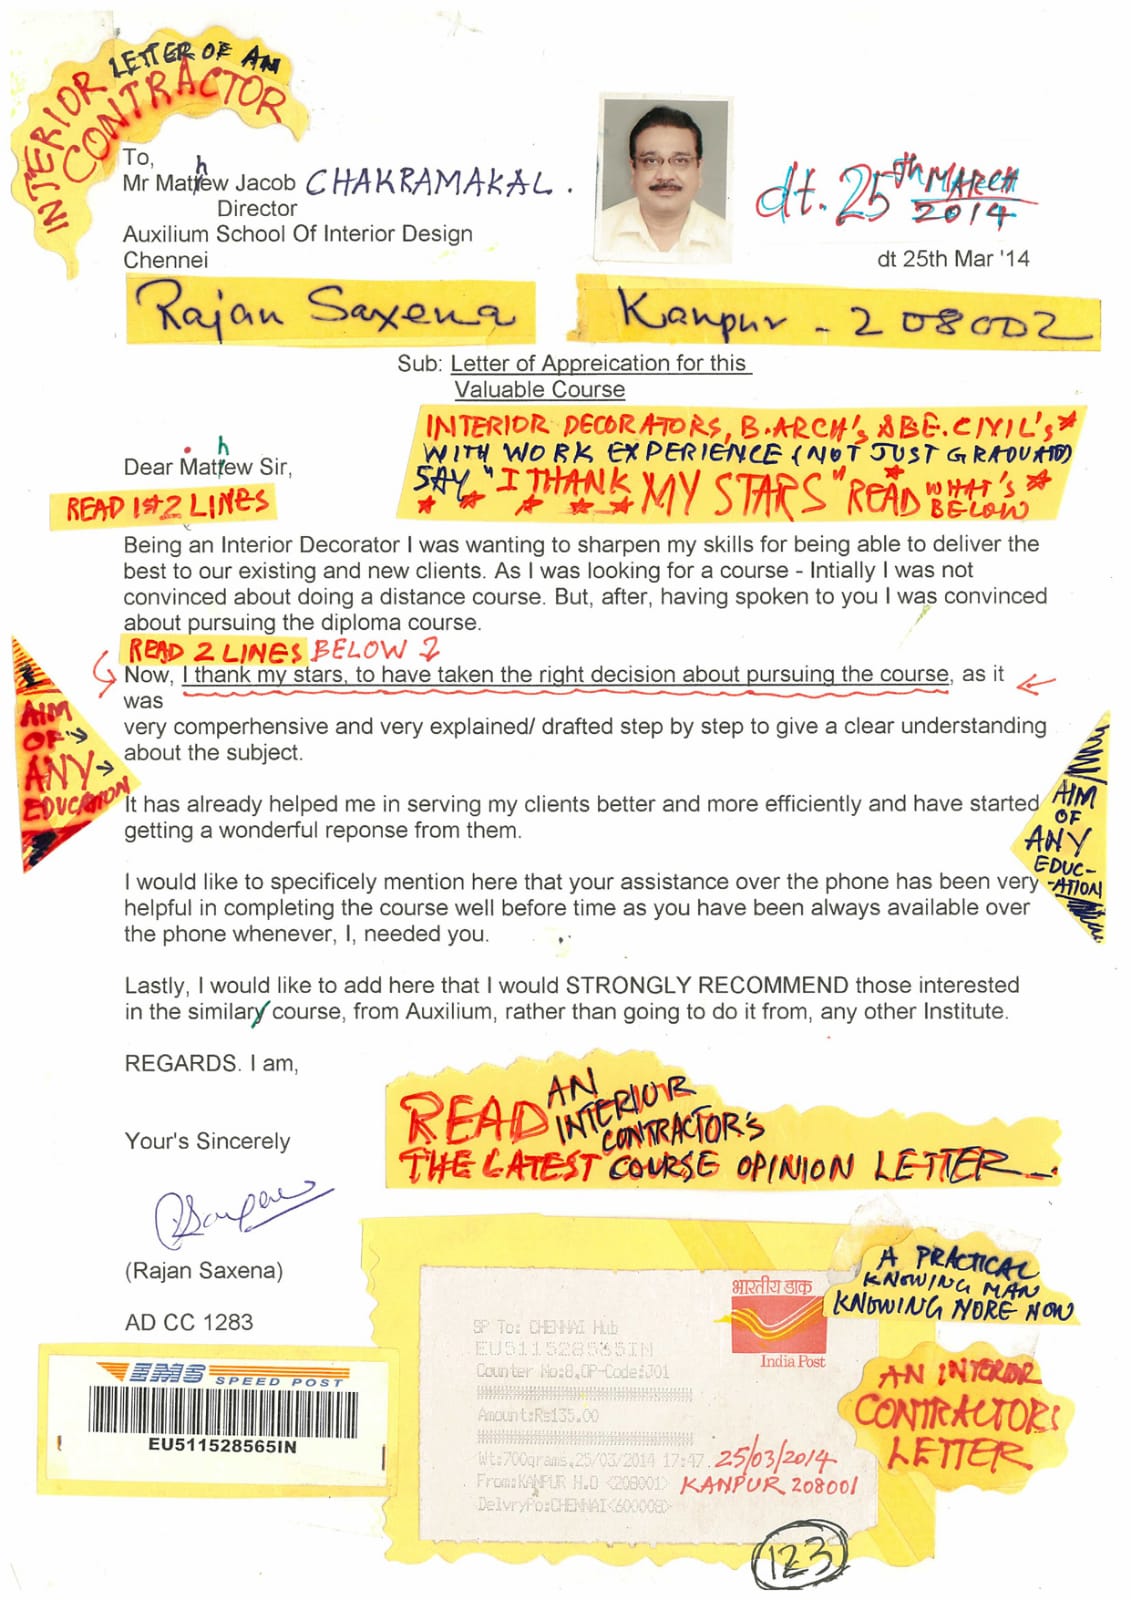 LETTER OF AN
INTERIOR
CONTRACTOR
To,
Mr Mathew Jacob CHAKRAMAKAL.
Director
Auxilium School Of Interior Design
Chennei
dt. 25th MARCH
2014
dt 25th Mar '14
Rajan Saxena
Kanpur - 208002
Sub: Letter of Appreication for this
Valuable Course
INTERIOR DECORATORS, B.ARCH's & B.E. CIVIL's
WITH WORK EXPERIENCE (NOT JUST GRADUATED)
SAY "I THANK MY STARS" READ WHAT'S
BELOW
Dear Mathew Sir,
READ 1st 2 LINES
Being an Interior Decorator I was wanting to sharpen my skills for being able to deliver the
best to our existing and new clients. As I was looking for a course - Intially I was not
convinced about doing a distance course. But, after, having spoken to you I was convinced
about pursuing the diploma course.
READ 2 LINES BELOW
Now, I thank my stars, to have taken the right decision about pursuing the course, as it
was
very comperhensive and very explained/ drafted step by step to give a clear understanding
about the subject.
AIM
OF
ANY
EDUCATION
It has already helped me in serving my clients better and more efficiently and have started
getting a wonderful reponse from them.
AIM
OF
ANY
EDUC-
-ATION
I would like to specificely mention here that your assistance over the phone has been very
helpful in completing the course well before time as you have been always available over
the phone whenever, I, needed you.
Lastly, I would like to add here that I would STRONGLY RECOMMEND those interested
in the similary course, from Auxilium, rather than going to do it from, any other Institute.
REGARDS. I am,
READ AN
INTERIOR
CONTRACTOR'S
THE LATEST COURSE OPINION LETTER
Your's Sincerely
(Rajan Saxena)
AD CC 1283
A PRACTICAL
KNOWING MAN
KNOWING MORE NOW
भारतीय डाक
India Post
SP To: CHENNAI Hub
EU511528565IN
Counter No:8,OP-Code:J01
Amount:Rs135.00
Wt:700grams,25/03/2014 17:47
From:KANPUR H.O <208001>
DelvryPo:CHENNAI<600008>
25/03/2014
KANPUR 208001
AN INTERIOR
CONTRACTORS
LETTER
EMS
SPEED POST
EU511528565IN
123